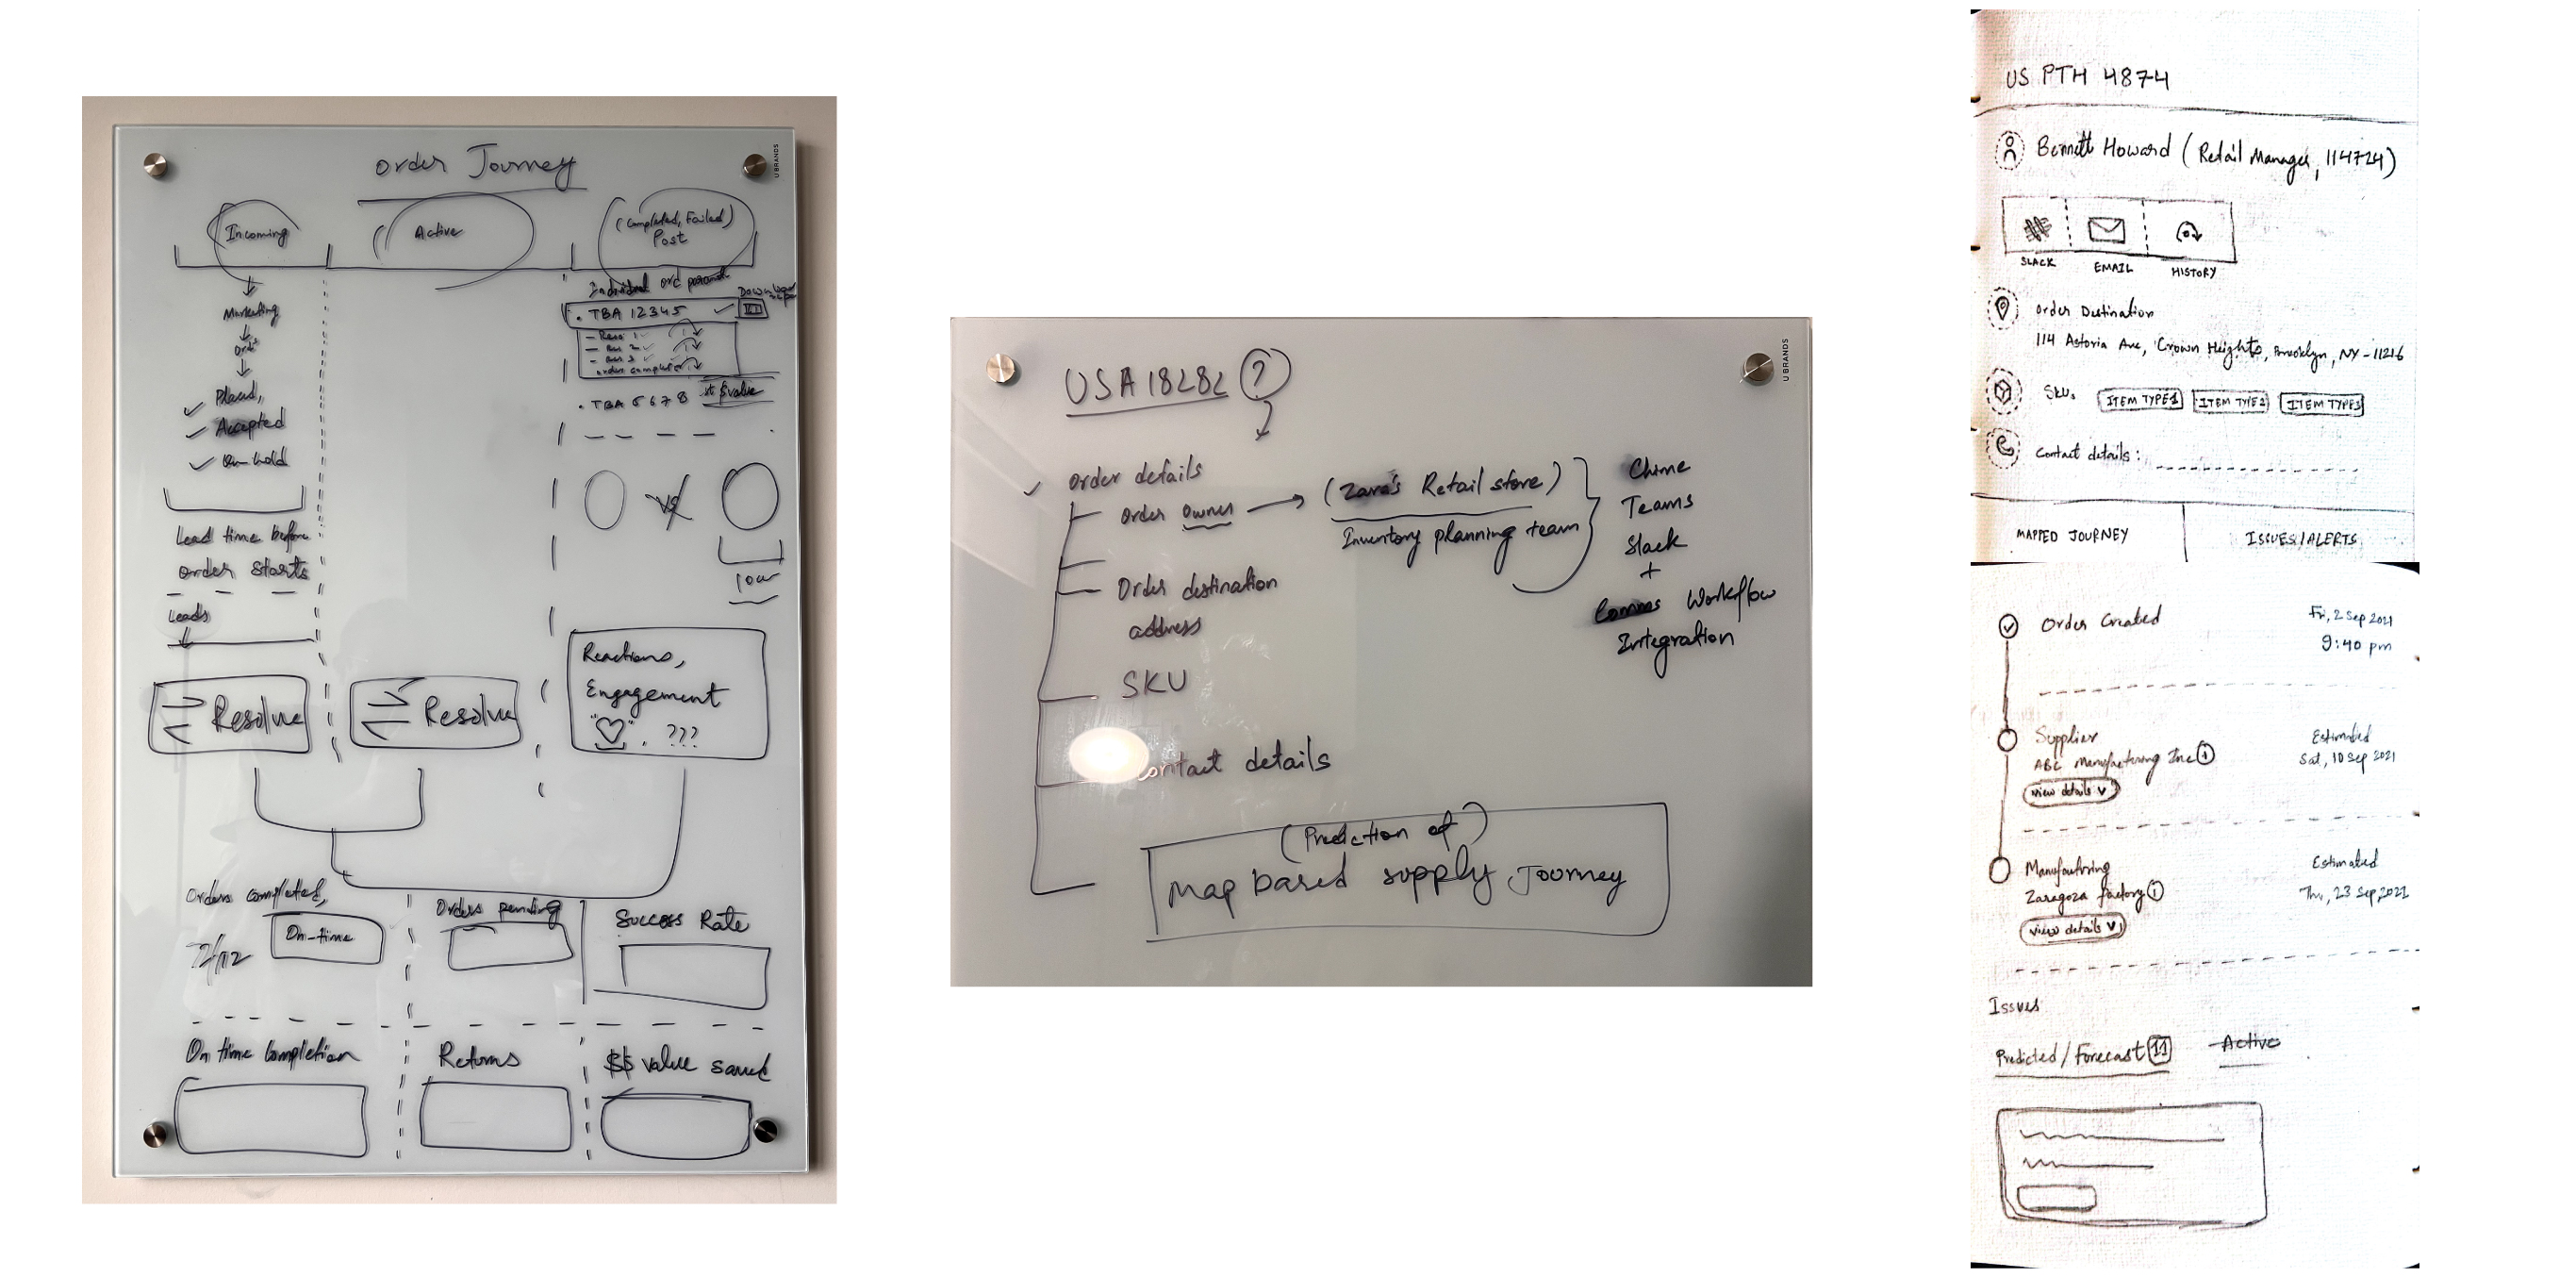 Order Journey
U BRANDS
Incoming
Active
(Completed, Failed)
Post
Marketing
Placed,
Accepted
On-hold
Lead time before
order starts
Leads
Individual
TBA 12345
order complete
TBA 5678
$ value
VS
Resolve
Resolve
Reactions,
Engagement
???
Orders completed,
On-time
Orders pending
Success Rate
On time Completion
Returns
$$ value saved
USA 18282 ?
U BRANDS
Order details
Order Owner
(Zara's Retail store)
Inventory planning team
Chime
Teams
Slack
+
Comms Workflow
Integration
Order destination
address
SKU
Contact details
(Prediction of)
Map based supply Journey
US PTH 4874
Bennett Howard (Retail Manager, 114724)
SLACK
EMAIL
HISTORY
Order Destination
114 Astoria Ave, Crown Heights, Brooklyn, NY - 11216
SKUs
ITEM TYPE 1
ITEM TYPE 2
ITEM TYPE 3
Contact details:
MAPPED JOURNEY
ISSUES/ALERTS
Order Created
Fri, 2 Sep 2021
9:40 pm
Supplier
ABC Manufacturing Inc
Estimated
Sat, 10 Sep 2021
view details
Manufacturing
Zaragoza factory
Estimated
Thu, 23 Sep, 2021
view details
Issues
Predicted/Forecast 11
Active